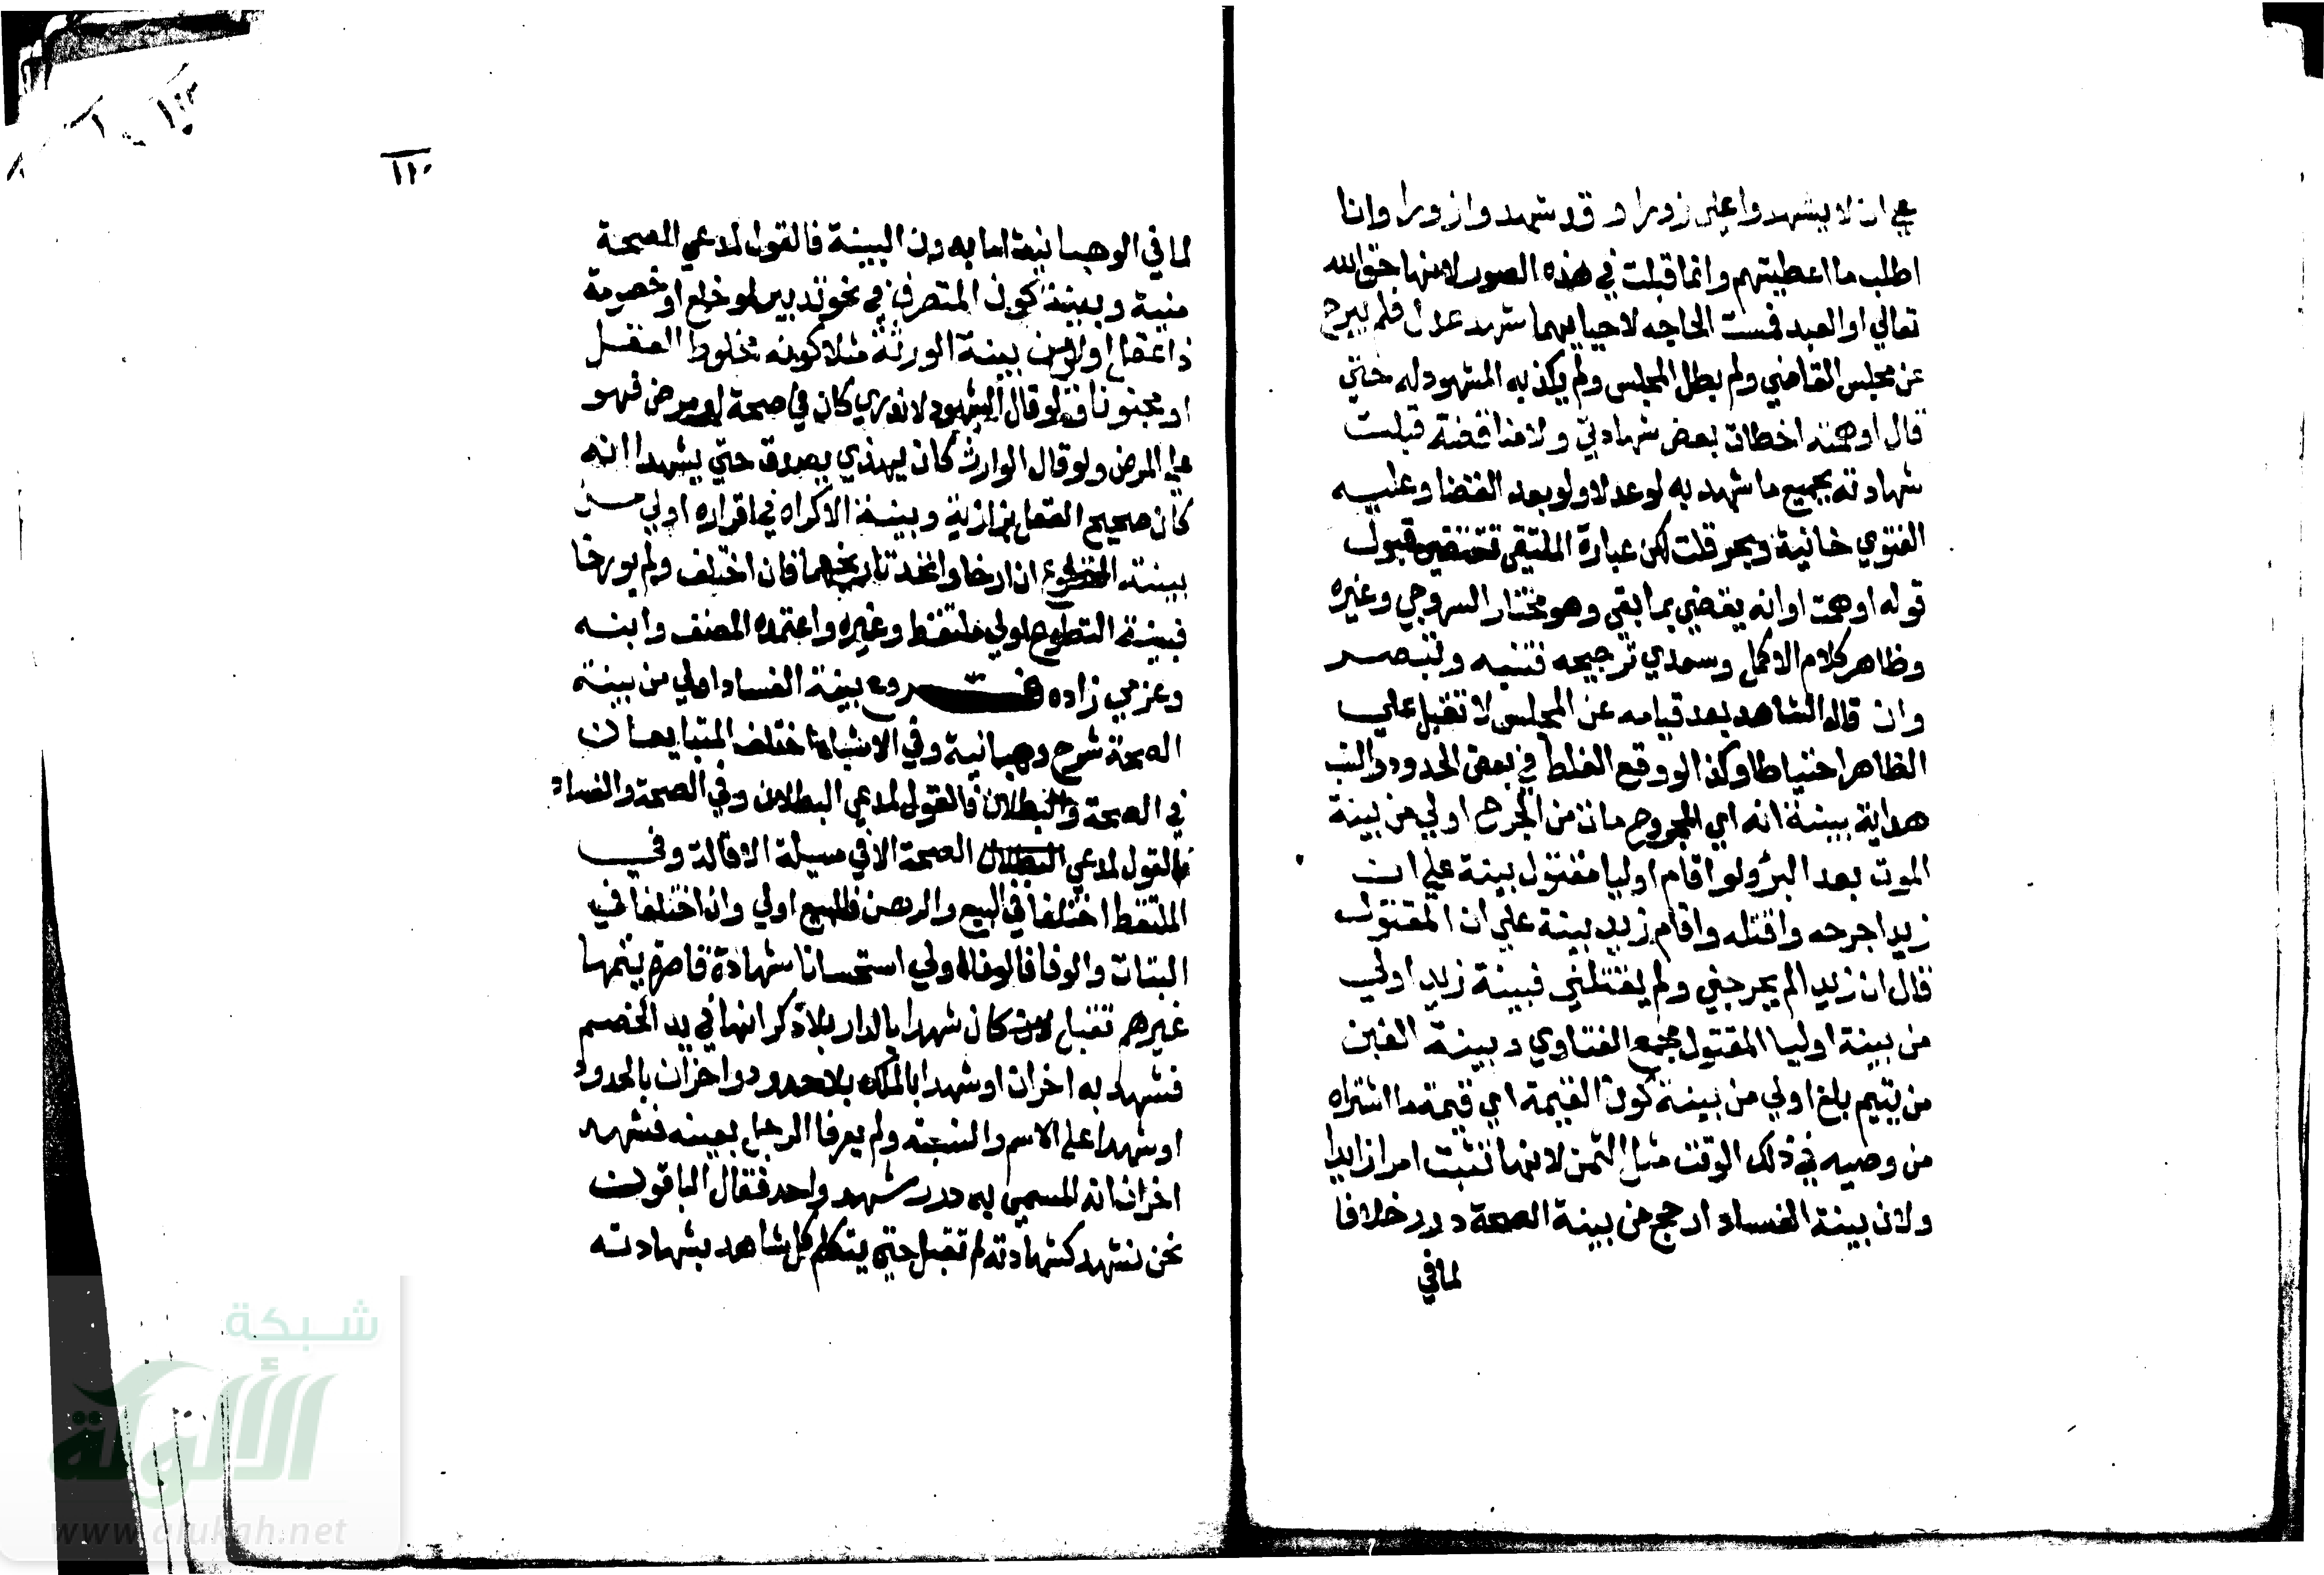 علي ان لا يشهدوا علي زورا وقد شهدوا زورا وانا
اطلب ما اعطيتهم وانما قبلت في هذه الصور لانها حق الله
تعالي او العبد فمست الحاجه لاحيايهما شهد عدل فلم يبرح
عن مجلس القاضي ولم يطل المجلس ولم يكذبه المشهود له حتي
قال اوهمت اخطات بعض شهادتي ولا مناقضة قبلت
شهادته بجميع ما شهد به لو عدلا ولو بعد القضا وعليه
الفتوي خانية وبحر قلت لكن عبارة الملتقي تقتضي قبول
قوله اوهمت او انه يقضي بما بقي وهو مختار السروجي وغيره
وظاهر كلام الاكمل وسعدي ترجيحه فتنبه وتبصر
وان قاله الشاهد بعد قيامه عن المجلس لا تقبل علي
الظاهر احتياطا وكذا لو وقع الغلط في بعض الحدود والنسب
هداية بينة انه اي المجروح مات من الجرح اولي من بينة
الموت بعد البرؤ ولو اقام اوليا مقتول بينة علي ان
زيدا جرحه واقتله واقام زيد بينة علي ان المقتول
قال ان زيدا لم يجرحني ولم يقتلني فبينة زيد اولي
من بينة اوليا المقتول مجمع الفتاوي وبينة الغبن
من يتيم بلغ اولي من بينة كون القيمة اي قيمة ما اشتراه
من وصيه في ذلك الوقت مثل الثمن لانها تثبت امرا زايدا
ولان بينة الفساد ارجح من بينة الصحة درر خلافا
لما في
١١٠
لما في الوهبانية اما بدون البينة فالقول لمدعي الصحة
منية وبينة كون المتصرف في نحو تدبير او خلع او خصومة
ذا عقل اولي من بينة الورثة مثلا كونه مخلوط العقل
او مجنونا ولو قال الشهود لا ندري كان في صحة او مرض فهو
علي المرض ولو قال الوارث كان يهذي يصدق حتي يشهدا انه
كان صحيح العقل بزازية وبينة الاكراه في اقراره اولي من
بينة الطوع ان ارخا واتحد تاريخهما فان اختلف ولم يورخا
فبينة التطوع اولي ملتقط وغيره واعتمده المصنف وابنه
وعزمي زاده فروع بينة الفساد اولي من بينة
الصحة شرح وهبانية وفي الاشباه اختلف المتبايعان
في الصحة والبطلان فالقول لمدعي البطلان وفي الصحة والفساد
فالقول لمدعي الصحة الا في مسيلة الاقالة وفي
الملتقط اختلفا في البيع والرهن فالبيع اولي وان اختلفا في
البتات والوفا فالوفا اولي استحسانا شهادة قاصرة يتمها
غيرهم تقبل كان شهدا بالدار بلا ذكر انها في يد الخصم
فشهد به اخران او شهدا بالملك بلا حدود واخران بالحدود
او شهدا علي الاسم والنسبة ولم يعرفا الرجل بعينه فشهد
اخران انه المسمي به درر شهد واحد فقال الباقون
نحن نشهد كشهادته لم تقبل حتي يتكلم كل شاهد بشهادته
شبكة
الألوكة
www.alukah.net